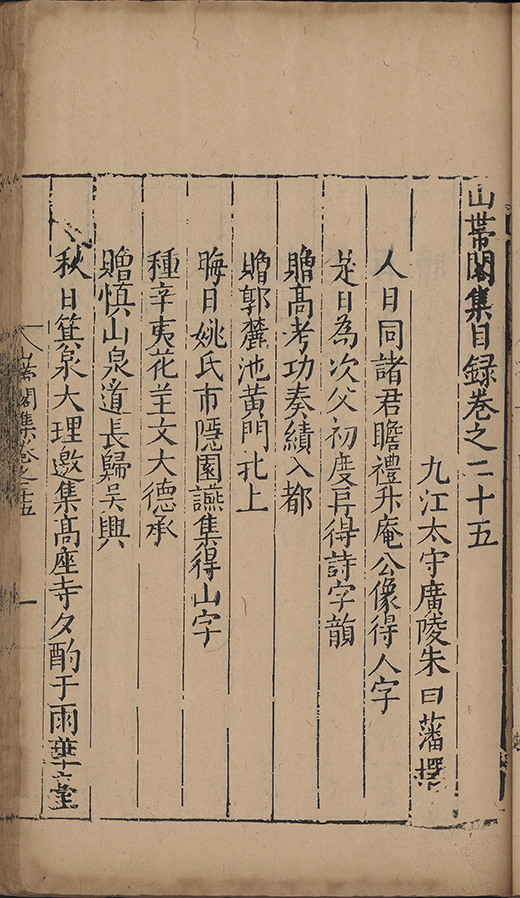 山帶閣集目録卷之二十五
九江太守廣陵朱曰藩撰
人日同諸君瞻禮升庵公像得人字
是日為次父初度再得詩字韻
贈髙考功奏績入都
贈郭麓池黄門北上
晦日姚氏市隱園讌集得山字
種辛夷花呈文大德承
贈慎山泉道長歸吳興
秋日箕泉大理邀集髙座寺夕酌于雨華堂
山帶閣集卷之二十五
一